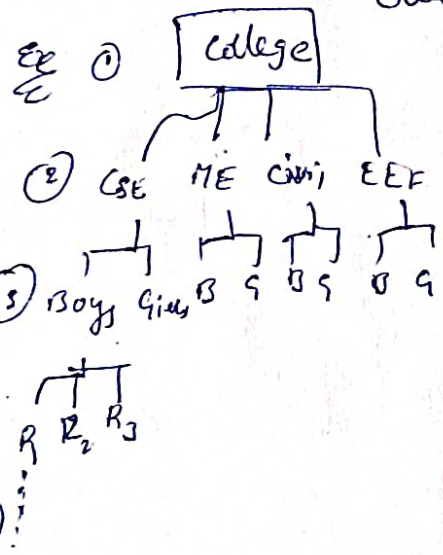 Ex ① College
② CSE ME Civil EEE
3 Boys Girls B G B G B G
R R2 R3